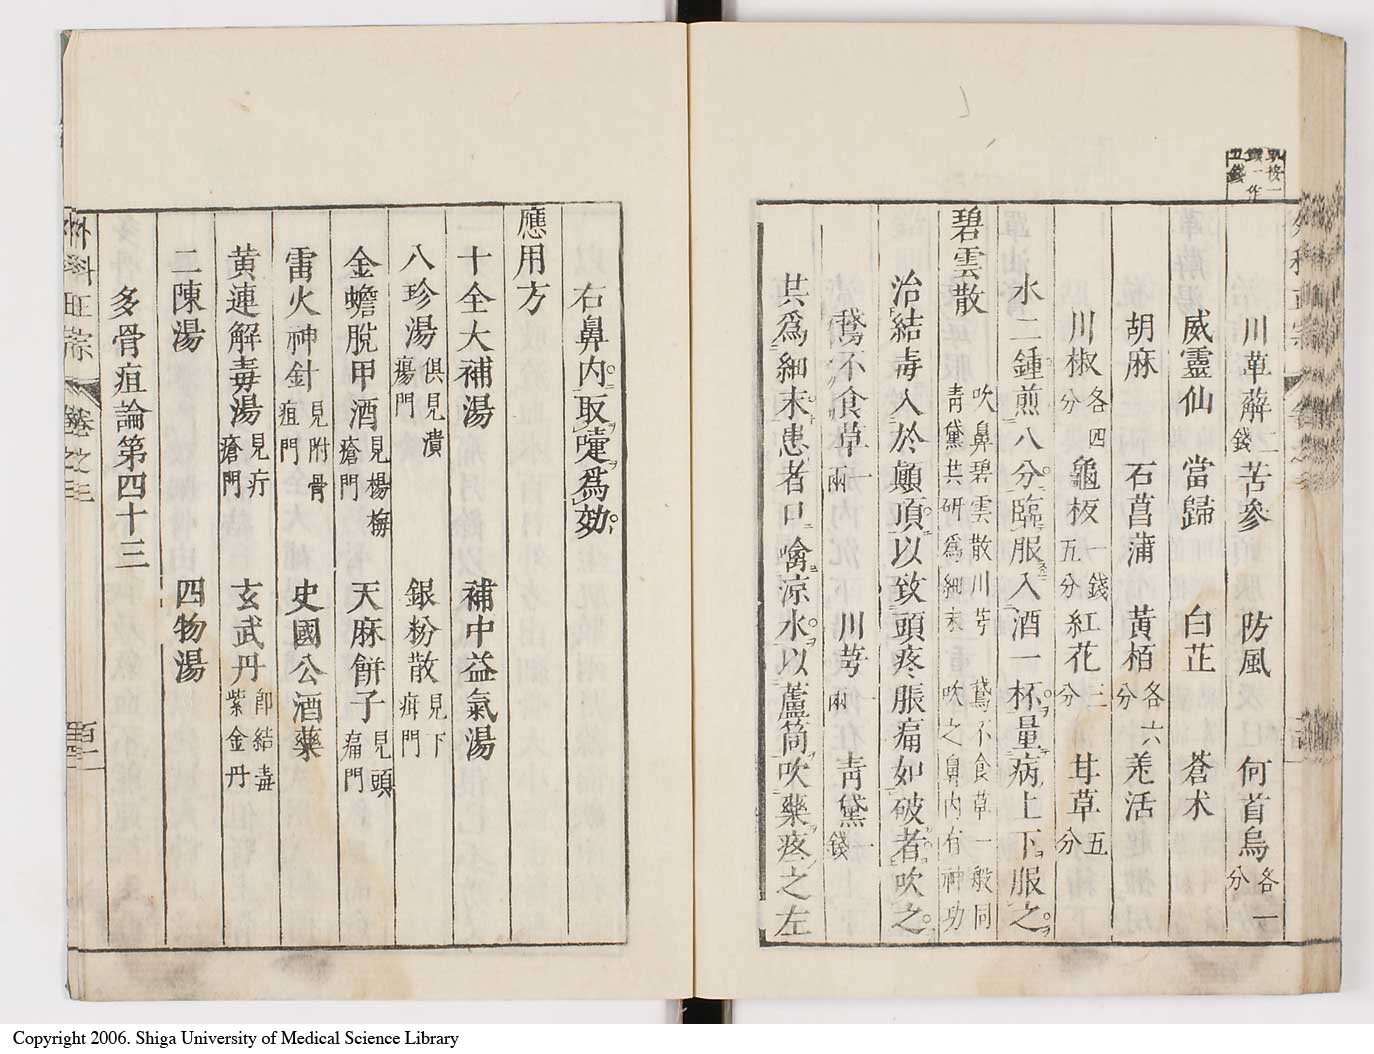 錢一作
五錢
川萆薢二錢 苦參 防風 何首烏各一分
威靈仙 當歸 白芷 蒼术
胡麻 石菖蒲 黃栢各六分 羗活
川椒各四分 龜板一錢五分 紅花三分 甘草五分
水二鍾煎八分臨服入酒一杯量病上下服之
碧雲散 吹鼻碧雲散川芎 鵞不食草一般同 青黛共研爲細末 吹之鼻內有神功
治結毒入於顚頂以致頭疼脹痛如破者吹之
鵞不食草一兩 川芎一兩 靑黛一錢
共爲細末患者口噙涼水以蘆筒吹藥疼之左
右鼻內取嚏爲効
應用方
十全大補湯 補中益氣湯
八珍湯俱見潰瘍門 銀粉散見下疳門
金蟾脫甲酒見楊梅瘡門 天麻餅子見頭痛門
雷火神針見附骨疽門 史國公酒藥
黄連解毒湯見疔瘡門 玄武丹卽結毒紫金丹
二陳湯 四物湯
多骨疽論第四十三
外科正宗 卷之三